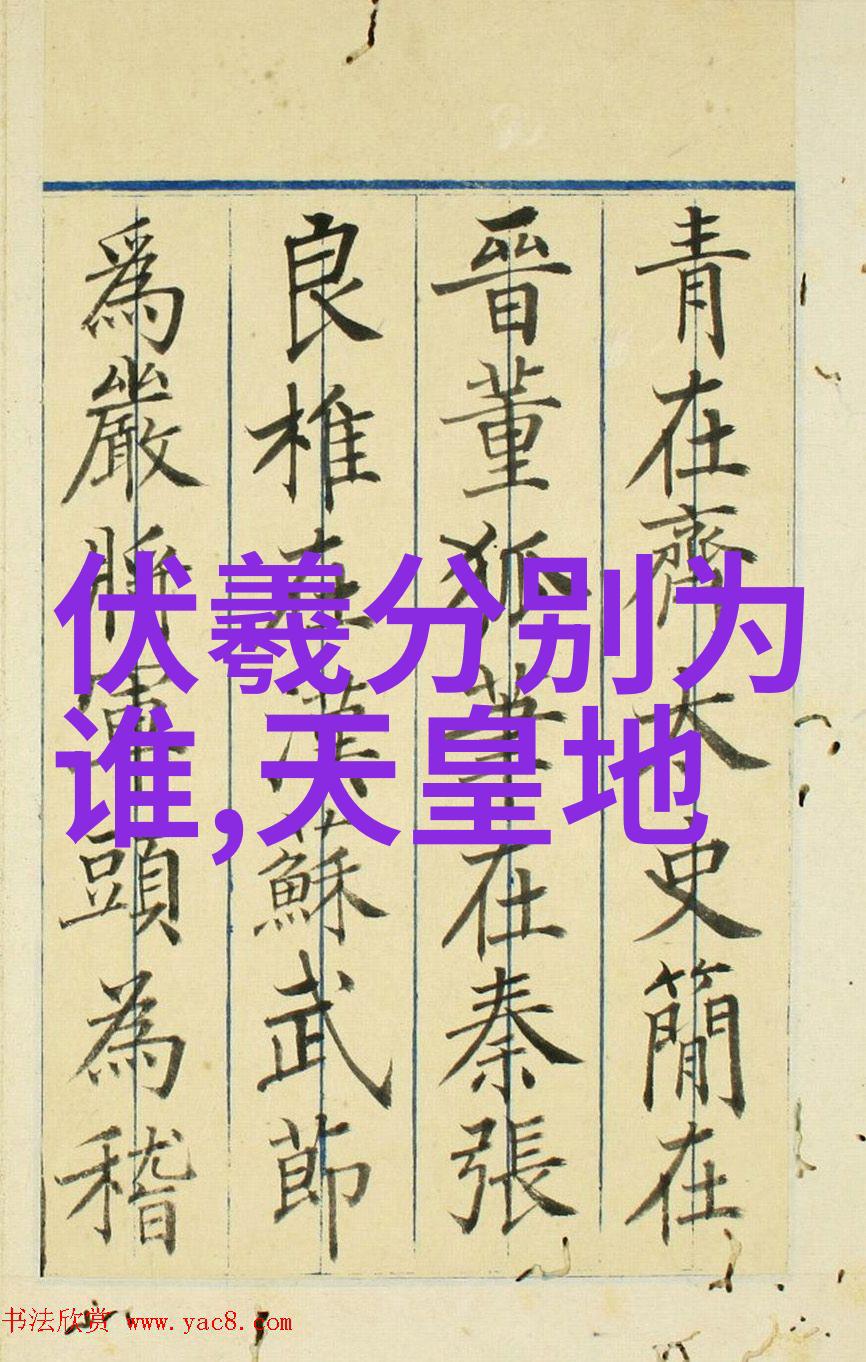 青在齊太史簡在
晉董狐筆在秦張
良椎在漢蘇武節
爲嚴將軍頭為嵇
伏羲分别为
谁,天皇地
书法欣赏 www.yac8.com